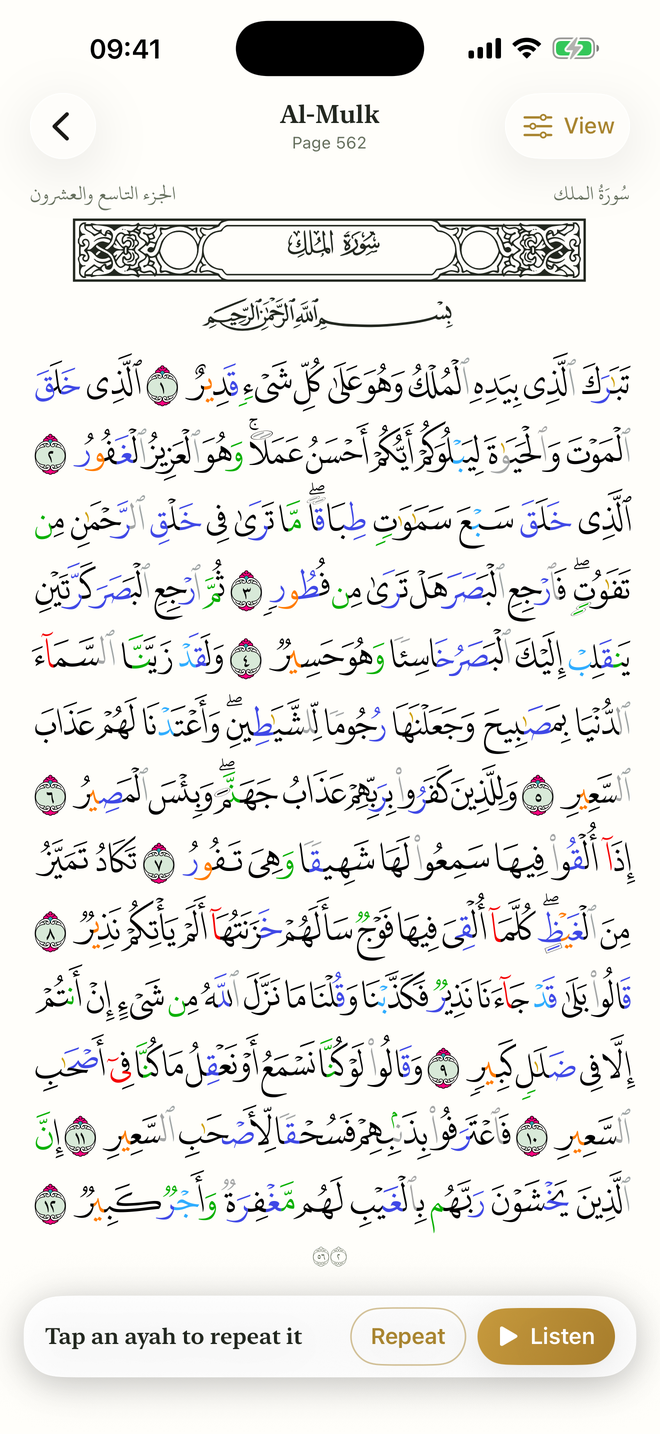 09:41
Al-Mulk
Page 562
View
سُورَةُ الملك
الجزء التاسع والعشرون
سُورَةُ المُلۡكِ
بِسۡمِ ٱللَّهِ ٱلرَّحۡمَٰنِ ٱلرَّحِيمِ
تَبَٰرَكَ ٱلَّذِي بِيَدِهِ ٱلۡمُلۡكُ وَهُوَ عَلَىٰ كُلِّ شَيۡءٖ قَدِيرٌ ١ ٱلَّذِي خَلَقَ
ٱلۡمَوۡتَ وَٱلۡحَيَوٰةَ لِيَبۡلُوَكُمۡ أَيُّكُمۡ أَحۡسَنُ عَمَلٗاۚ وَهُوَ ٱلۡعَزِيزُ ٱلۡغَفُورُ ٢
ٱلَّذِي خَلَقَ سَبۡعَ سَمَٰوَٰتٖ طِبَاقٗاۖ مَّا تَرَىٰ فِي خَلۡقِ ٱلرَّحۡمَٰنِ مِن
تَفَٰوُتٖۖ فَٱرۡجِعِ ٱلۡبَصَرَ هَلۡ تَرَىٰ مِن فُطُورٖ ٣ ثُمَّ ٱرۡجِعِ ٱلۡبَصَرَ كَرَّتَيۡنِ
يَنقَلِبۡ إِلَيۡكَ ٱلۡبَصَرُ خَاسِئٗا وَهُوَ حَسِيرٞ ٤ وَلَقَدۡ زَيَّنَّا ٱلسَّمَآءَ
ٱلدُّنۡيَا بِمَصَٰبِيحَ وَجَعَلۡنَٰهَا رُجُومٗا لِّلشَّيَٰطِينِۖ وَأَعۡتَدۡنَا لَهُمۡ عَذَابَ
ٱلسَّعِيرِ ٥ وَلِلَّذِينَ كَفَرُواْ بِرَبِّهِمۡ عَذَابُ جَهَنَّمَۖ وَبِئۡسَ ٱلۡمَصِيرُ ٦
إِذَآ أُلۡقُواْ فِيهَا سَمِعُواْ لَهَا شَهِيقٗا وَهِيَ تَفُورُ ٧ تَكَادُ تَمَيَّزُ
مِنَ ٱلۡغَيۡظِۖ كُلَّمَآ أُلۡقِيَ فِيهَا فَوۡجٞ سَأَلَهُمۡ خَزَنَتُهَآ أَلَمۡ يَأۡتِكُمۡ نَذِيرٞ ٨
قَالُواْ بَلَىٰ قَدۡ جَآءَنَا نَذِيرٞ فَكَذَّبۡنَا وَقُلۡنَا مَا نَزَّلَ ٱللَّهُ مِن شَيۡءٍ إِنۡ أَنتُمۡ
إِلَّا فِي ضَلَٰلٖ كَبِيرٖ ٩ وَقَالُواْ لَوۡ كُنَّا نَسۡمَعُ أَوۡ نَعۡقِلُ مَا كُنَّا فِيٓ أَصۡحَٰبِ
ٱلسَّعِيرِ ١٠ فَٱعۡتَرَفُواْ بِذَنۢبِهِمۡ فَسُحۡقٗا لِّأَصۡحَٰبِ ٱلسَّعِيرِ ١١ إِنَّ
ٱلَّذِينَ يَخۡشَوۡنَ رَبَّهُم بِٱلۡغَيۡبِ لَهُم مَّغۡفِرَةٞ وَأَجۡرٞ كَبِيرٞ ١٢
Tap an ayah to repeat it
Repeat
Listen